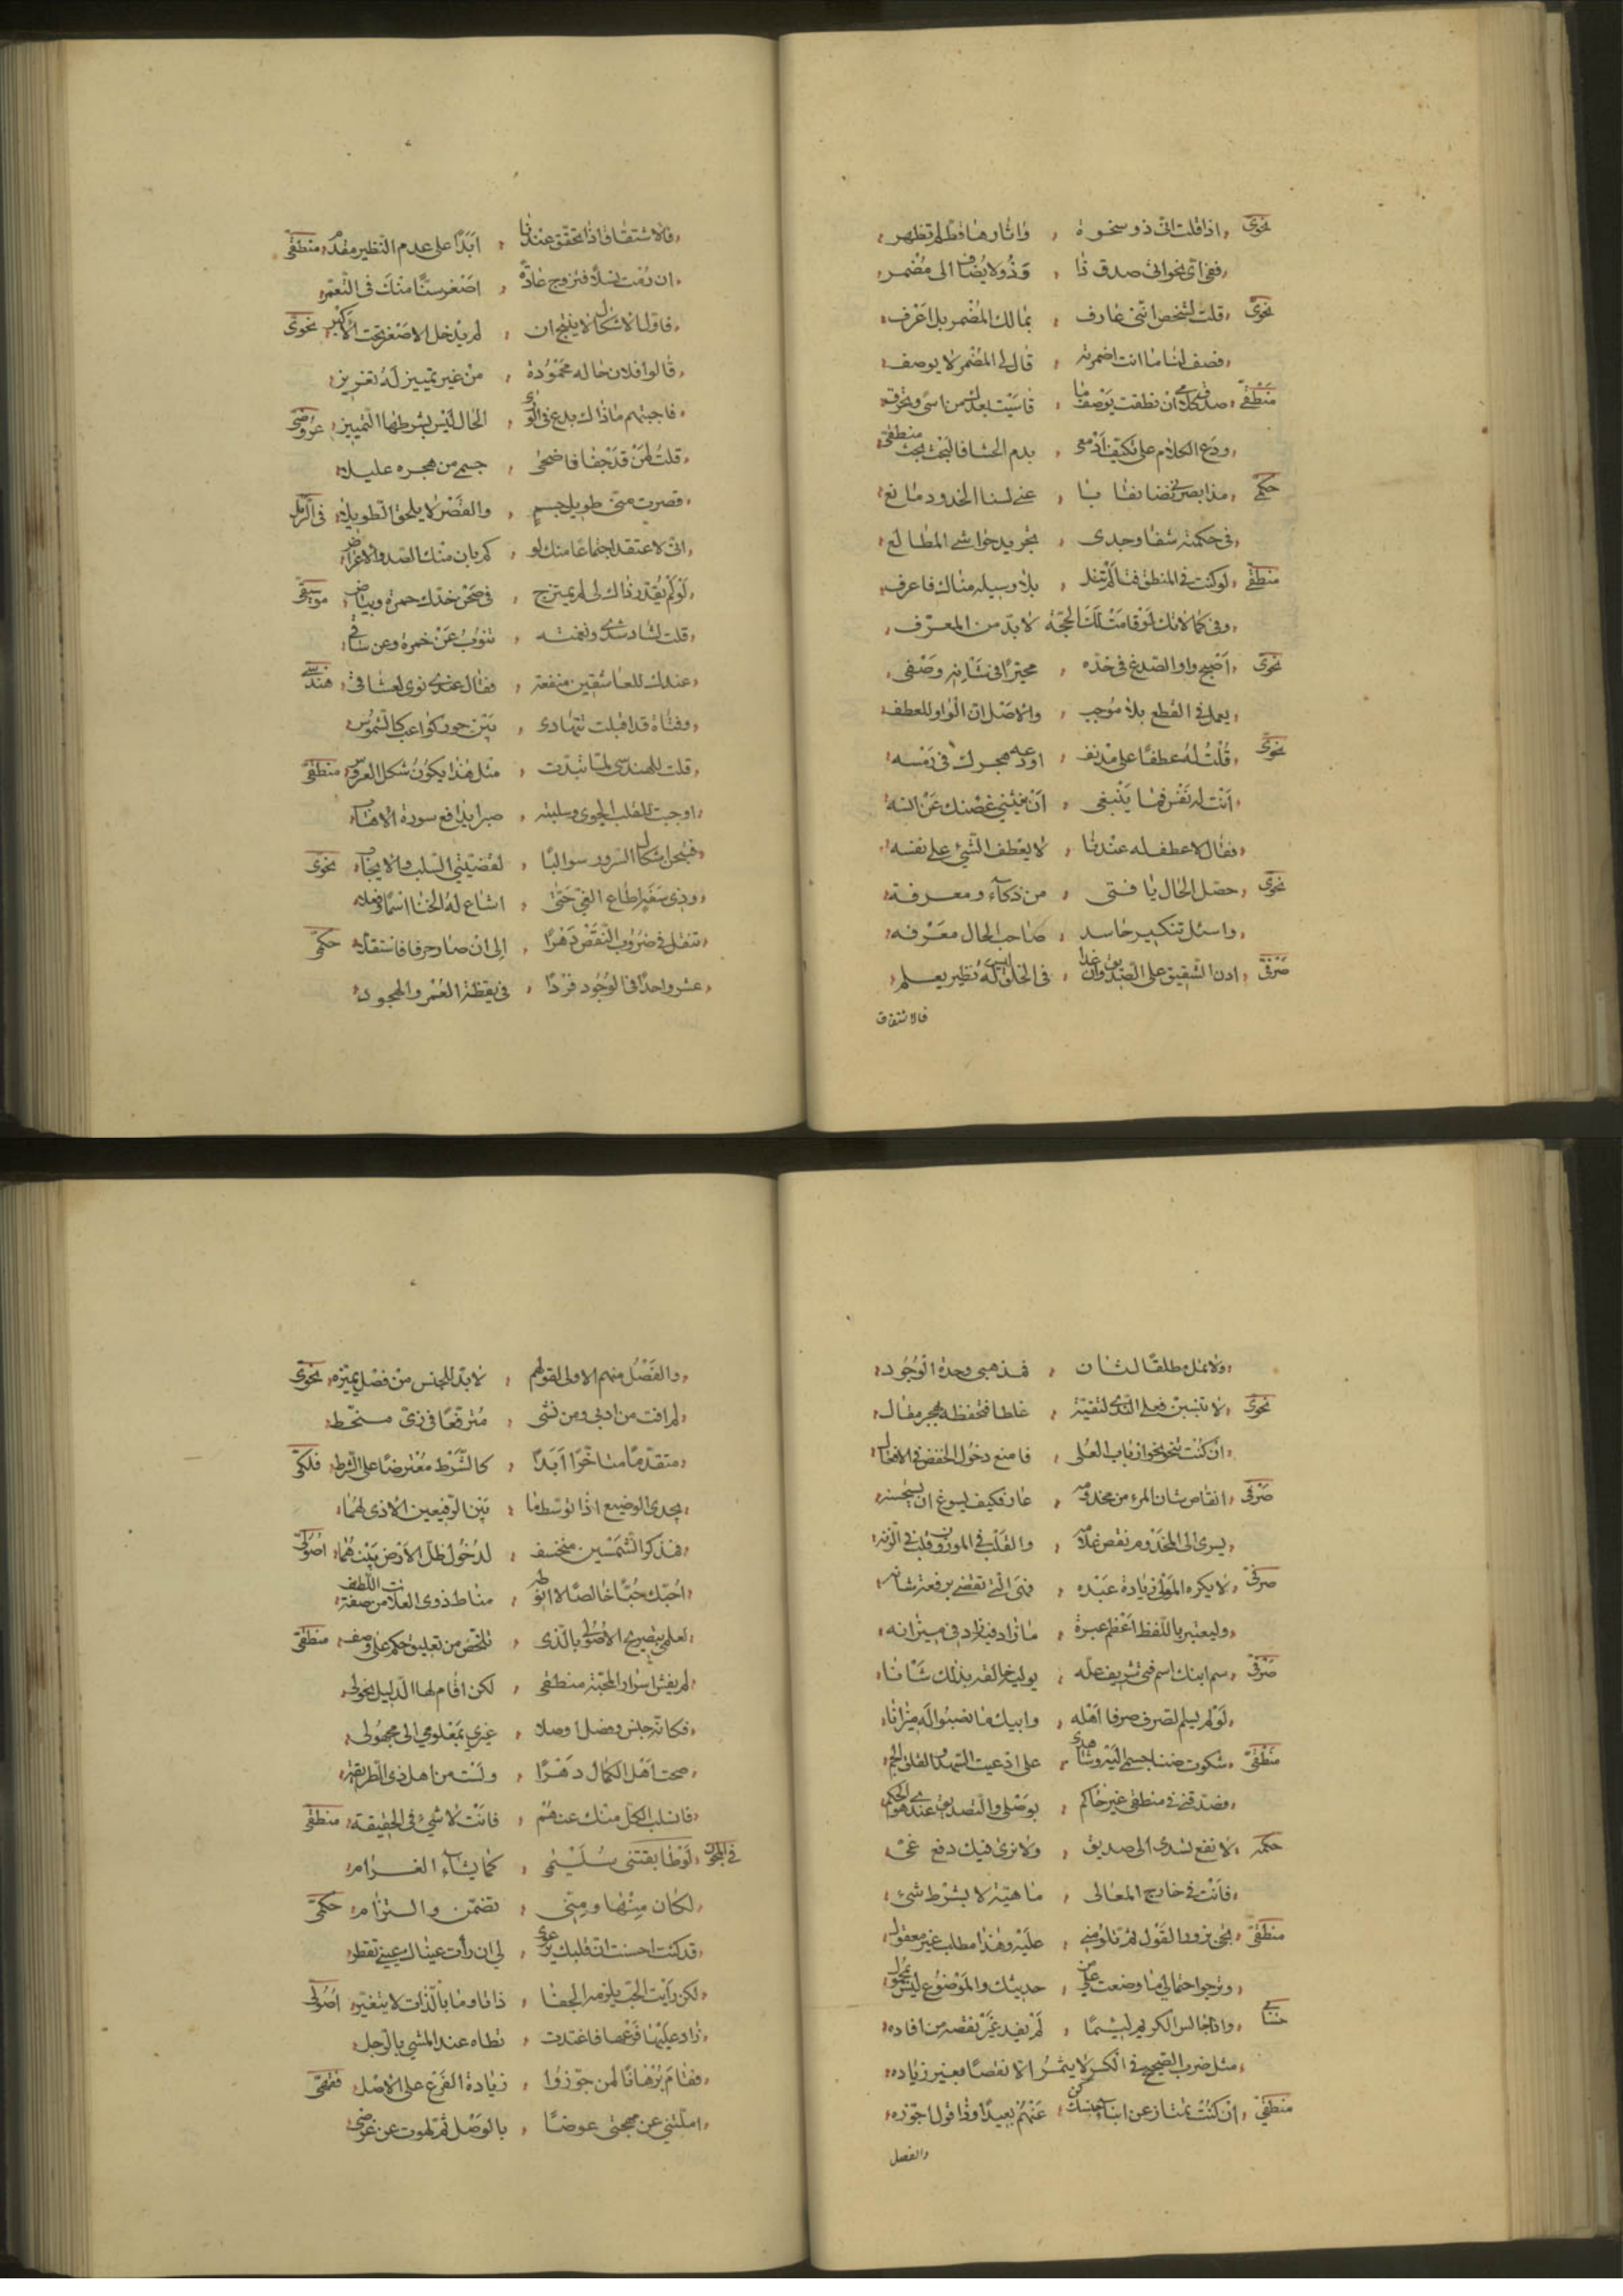 نحوى اذا قلت انى ذو سخوة وآثارها قط لم تظهر
ففى اى نحو انى صدق ذا وذو لا يضاف الى مضمر
نحوى قلت لشخص اننى عارف بمالك المضمر بل اعرف
فصف لنا ما انت اضمرته قال لى المضمر لا يوصف
منطقى صدق كلامى ان نطقت بوصف ما قاسيت بعدك من اسى وتحرق
ودع الكلام على تكيف ادمعى بدم الحشا فالبحث بحث منطقى
حكمى مذ ابصر
فى حكمته شفا وجدى تجريد حواشى المطالع
منطقى لو كنت فى المنطق لم تنل بلا وسيلة مناك فاعرف
وفى كمالاتك لو قامت لك الحجة لا بد من المعرف
نحوى اصبح واو الصدغ فى خده محيرا فى شانه وصفى
يعمل فى القطع بلا موجب والاصل ان الواو للعطف
نحوى قلت له عطفا على مدنف اودعه هجرك فى رمسه
انت له نفس فما ينبغى ان ينثنى غصنك عن انسه
فقال لا عطف له عندنا لا يعطف الشئ على نفسه
نحوى حصل الحال يا فتى من ذكآء ومعرفة
واسئل تنكير حاسد صاحب الحال معرفه
صرفى ادن الشقيق على الصديق وان غدا فى الخلق ليس له نظير يعلم
فالاشتقاق
فالاشتقاق اذا تحقق عندنا ابدا على عدم النظير مقدم منطقى
ان رمت نسلا فتزوج غادة اصغر سنا منك فى التعمر
فاول الاشكال لا ينتج ان لم يدخل الاصغر تحت الاكبر نحوى
قالوا فلان حاله محمودة من غير تمييز له تعزيز
فاجبتهم ماذاك بدع فى الورى الحال ليس بشرطها التمييز عروضى
قلت لمن قد جفا فاضحى جسمى من هجره عليلا
قصرت منى طويل جسم والقصر لا يلحق الطويلا فى الرمل
انى لاعتقد اجتماعا منك لو كم بان منك الصد والاعراض
لو لم يقدر ذاك لى لم يمتزج فى صحن خدك حمرة وبياض موسيقى
قلت لشاد شدى ونغمته تنوب عن خمرة وعن ساقى
عندك للعاشقين منفعة فقال عندى نوى لعشاقى هندسى
وفتاة قد اقبلت تتهادى بين حور كواعب كالشموس
قلت للهندسى لما تبدت مثل هذا يكون شكل العروس منطقى
اوجبت للقلب الجوى وسلبته صبرا يدافع سورة
اشكال السرور سوالبا لقضيتى السلب والايجاب نحوى
وذى سفه اطاع الغى حتى اشاع له الخنا اسما وفعلا
تنقل فى ضروب النقص دهرا الى ان صار حرفا فاستقلا حكمى
عش واحدا فى الوجود فردا فى يقظة العمر والهجود
ولا تمل طلقا لثان فمذهبى وحدة الوجود
نحوى لا تنسبن فعل الندى لنقيه غلطا فتحفظه بهجر مقال
ان كنت تنحو نحو ارباب العلى فامنع دخول الخفض فى الافعال
صرفى انقاص شان المرء من مخدومه عار فكيف يسوغ ان يستحسنه
يسرى الى المخدوم نقص غلامه والقلب فى الموزون قلب فى الزنه
صرفى لا يكره المولى زيادة عبده فهى التى تقضى برفعة شانه
وليعتبر باللفظ اعظم عبرة ما زاد فيه زاد فى ميزانه
صرفى سم ابنك اسم فتى شريف عله يوليه خالقه بذلك شانا
لو لم يسلم لصرف صرفا اهله وابيك ما نصبوا له ميزانا
منطقى شكوت ضنا جسمى اليه وشاهدى على ادعيت السهد والقلق الجم
فصدقنى فى منطقى غير حاكم بوصلى والتصديق عندهم الحكم
حكمه لا نفع تسدى الى صديق ولا نرى فيك دفع غى
فانت فى خارج المعالى ماهية لا بشرط شئ
منطقى تجى بزور القول ثم تلومنى عليه وهذا مطلب غير معقول
وترجو احتمالى ما وضعت على من حديثك والموضوع ليس بمحمول
حسابى واذا جالس الكريم لئيما لم يفد غير نقصه من افاده
مثل ضرب الصحيح فى الكسر لا يثمر الا نقصا بغير زياده
منطقى ان كنت تمتاز عن ابناء جنسك كن عنهم بعيدا وذا قول اجوزه
والفصل
والفصل منهم الاولى لقولهم لا بد للجنس من فصل يميزه نحوى
لم افت من ادبى ومن نشبى مترفعا فى زى منحط
متقدما متاخرا ابدا كالشرط معترضا على الشرط فلكى
يجدى الوضيع اذا توسط ما بين الرفيعين الاذى لهما
فذكو الشمسين منخسف لدخول ظل الارض بينهما اصولى
احبك حبا خالصا لا انوطه مناط ذوى العلات من اللطف صفة
لعلمى بتصريح الاصولى بالذى تلخص من تعليق حكم على وصف منطقى
لم يفش اسرار المحبة منطقى لكن اقام لها الدليل نحولى
فكانه جنس وفصل اوصلا غيرى بمعلومى الى مجهولى
صحت اهل الكمال دهرا ولست من اهل ذى الطريقه
فانسلب الكل منك عنهم فانت لا شئ فى الحقيقة منطقى
فى المجون لو طابقتنى سليمى كما يشآء الغرام
لكان منها ومنى تضمن والتزام حكمى
قد كنت احسنت ان قلبك يرعوى لى ان رأت عيناك عينى تقطر
لكن رأيت الحب يلزمه الجفا ذاتا وما بالذات لا يتغير اصولى
زاد عليها فرعها فاغتدت تطاه عند المشى بالرجل
فقام برهانا لمن جوزوا زيادة الفرع على الاصل فقهى
املتنى عن مهجتى عوضا بالوصل ثم لهوت عن غرضى